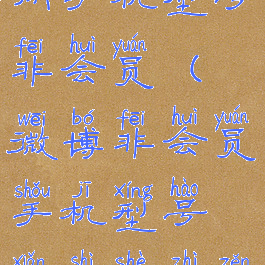 fēi huì yuán
非会员（
wēi bó fēi huì yuán
微博非会员
shǒu jī xíng hào
手机型号
xiǎn shì shè zhì zěn